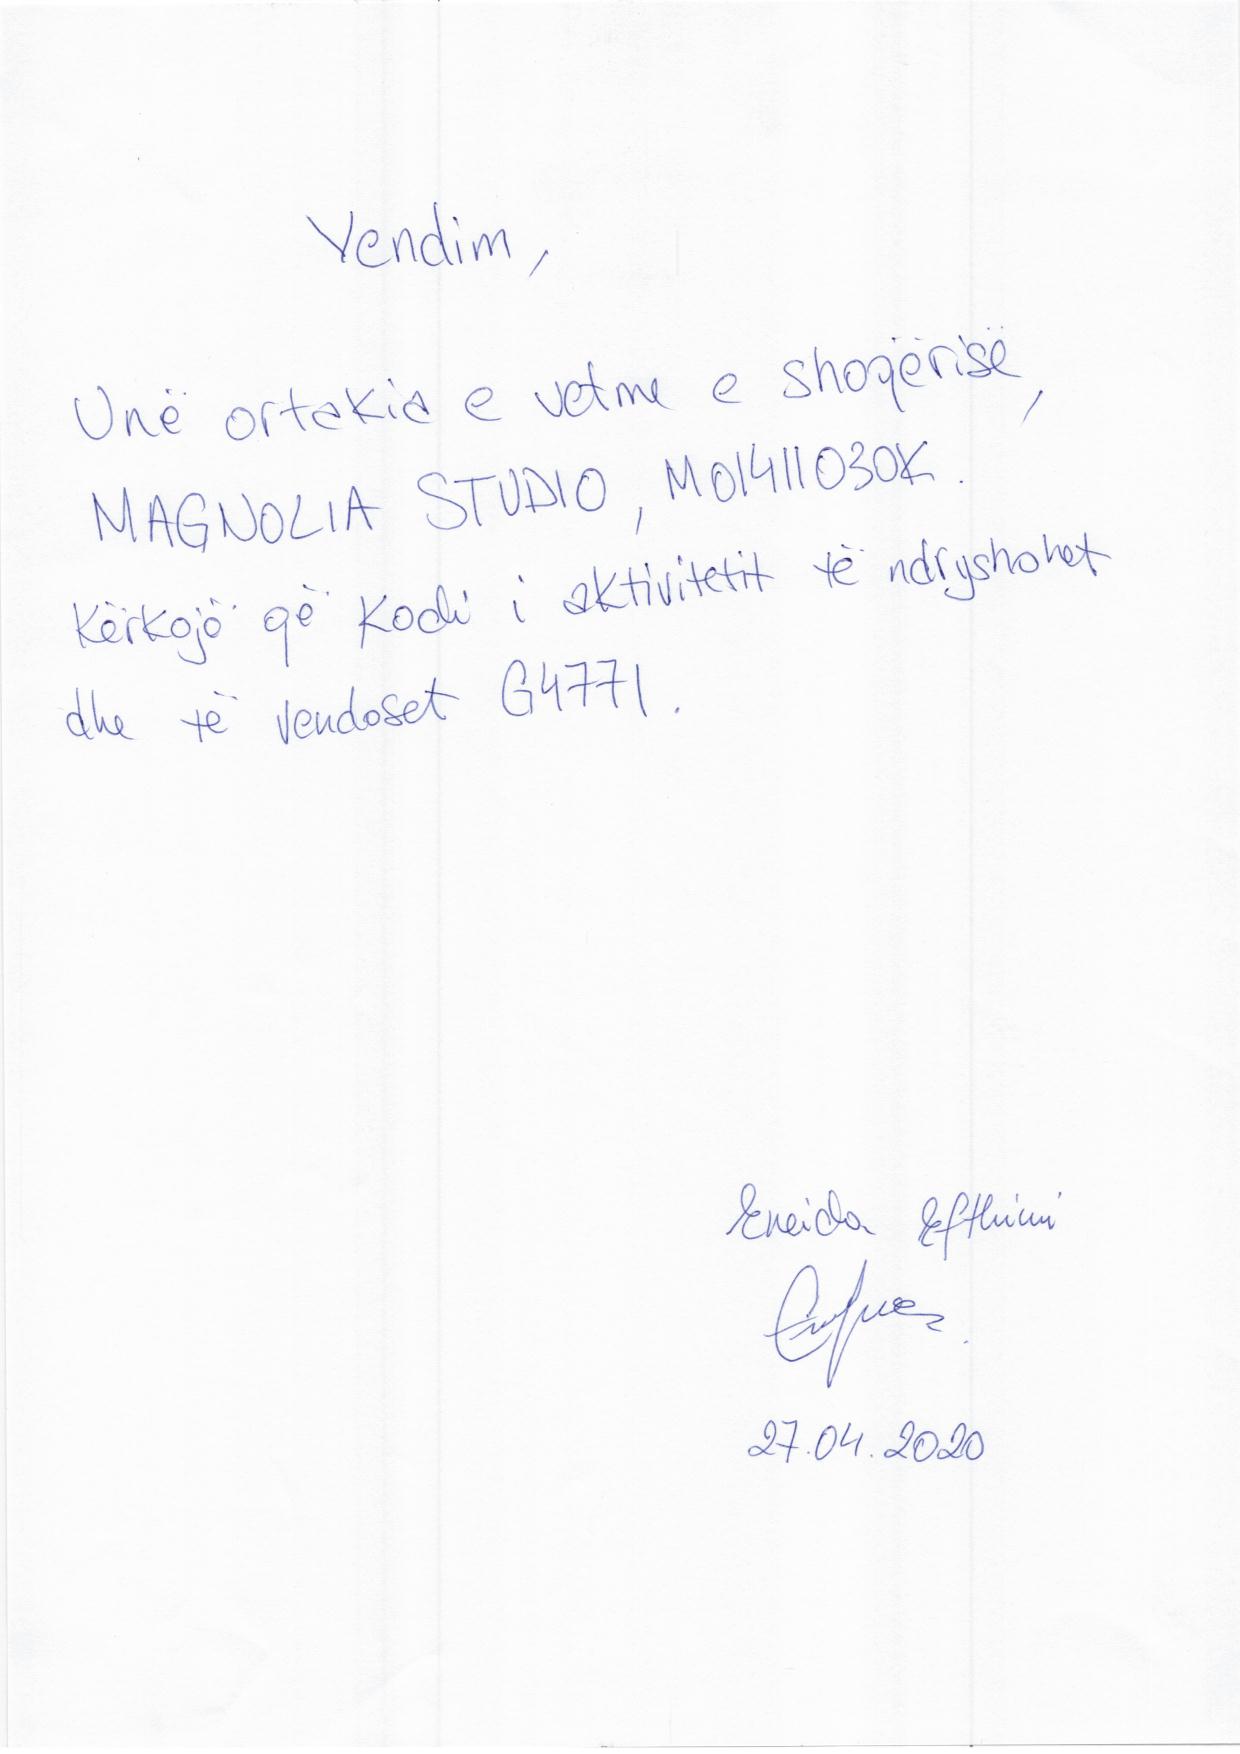 Vendim,
Unë ortakia e vetme e shoqërisë,
MAGNOLIA STUDIO, M01411030K.
Kërkojë që kodi i aktivitetit të ndryshohet
dhe të vendoset G4771.
Eneida Efthimi
27.04.2020